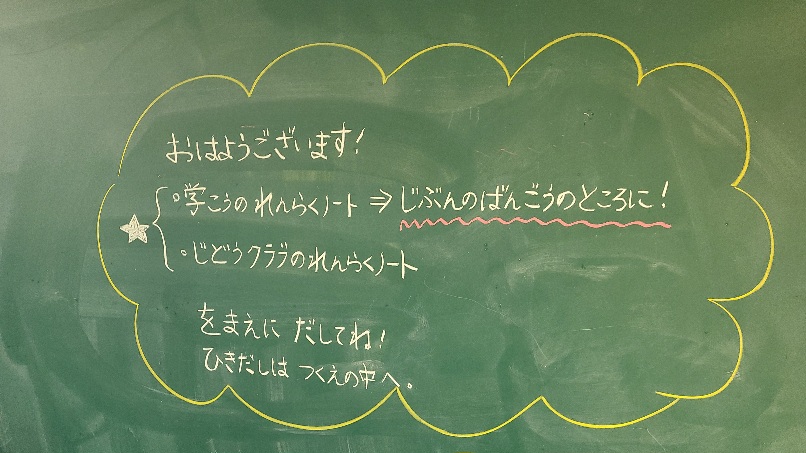 おはようございます!
★ ・学こうのれんらくノート ⇒ じぶんのばんごうのところに!
・じどうクラブのれんらくノート
をまえに だしてね!
ひきだしは つくえの中へ。